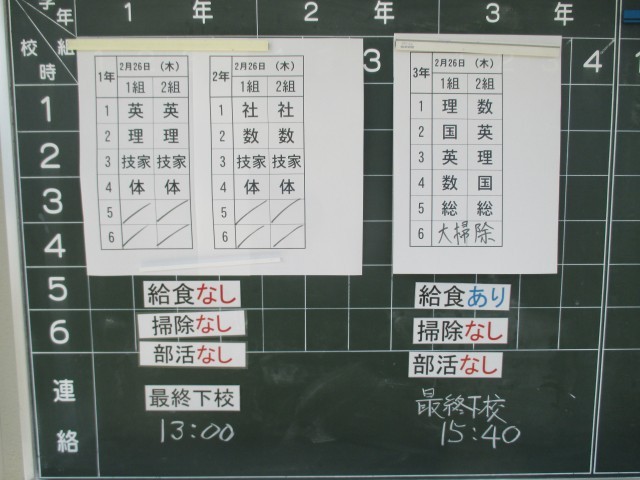 学年 1 年 2 年 3 年
校時 組 3 4
1年 2月26日 (木)
1組 2組
1 英 英
2 理 理
3 技家 技家
4 体 体
5
6
2年 2月26日 (木)
1組 2組
1 社 社
2 数 数
3 技家 技家
4 体 体
5
6
3年 2月26日 (木)
1組 2組
1 理 数
2 国 英
3 英 理
4 数 国
5 総 総
6 大掃除
1
2
3
4
5
6
給食なし
掃除なし
部活なし
最終下校
13:00
給食あり
掃除なし
部活なし
最終下校
15:40
連絡